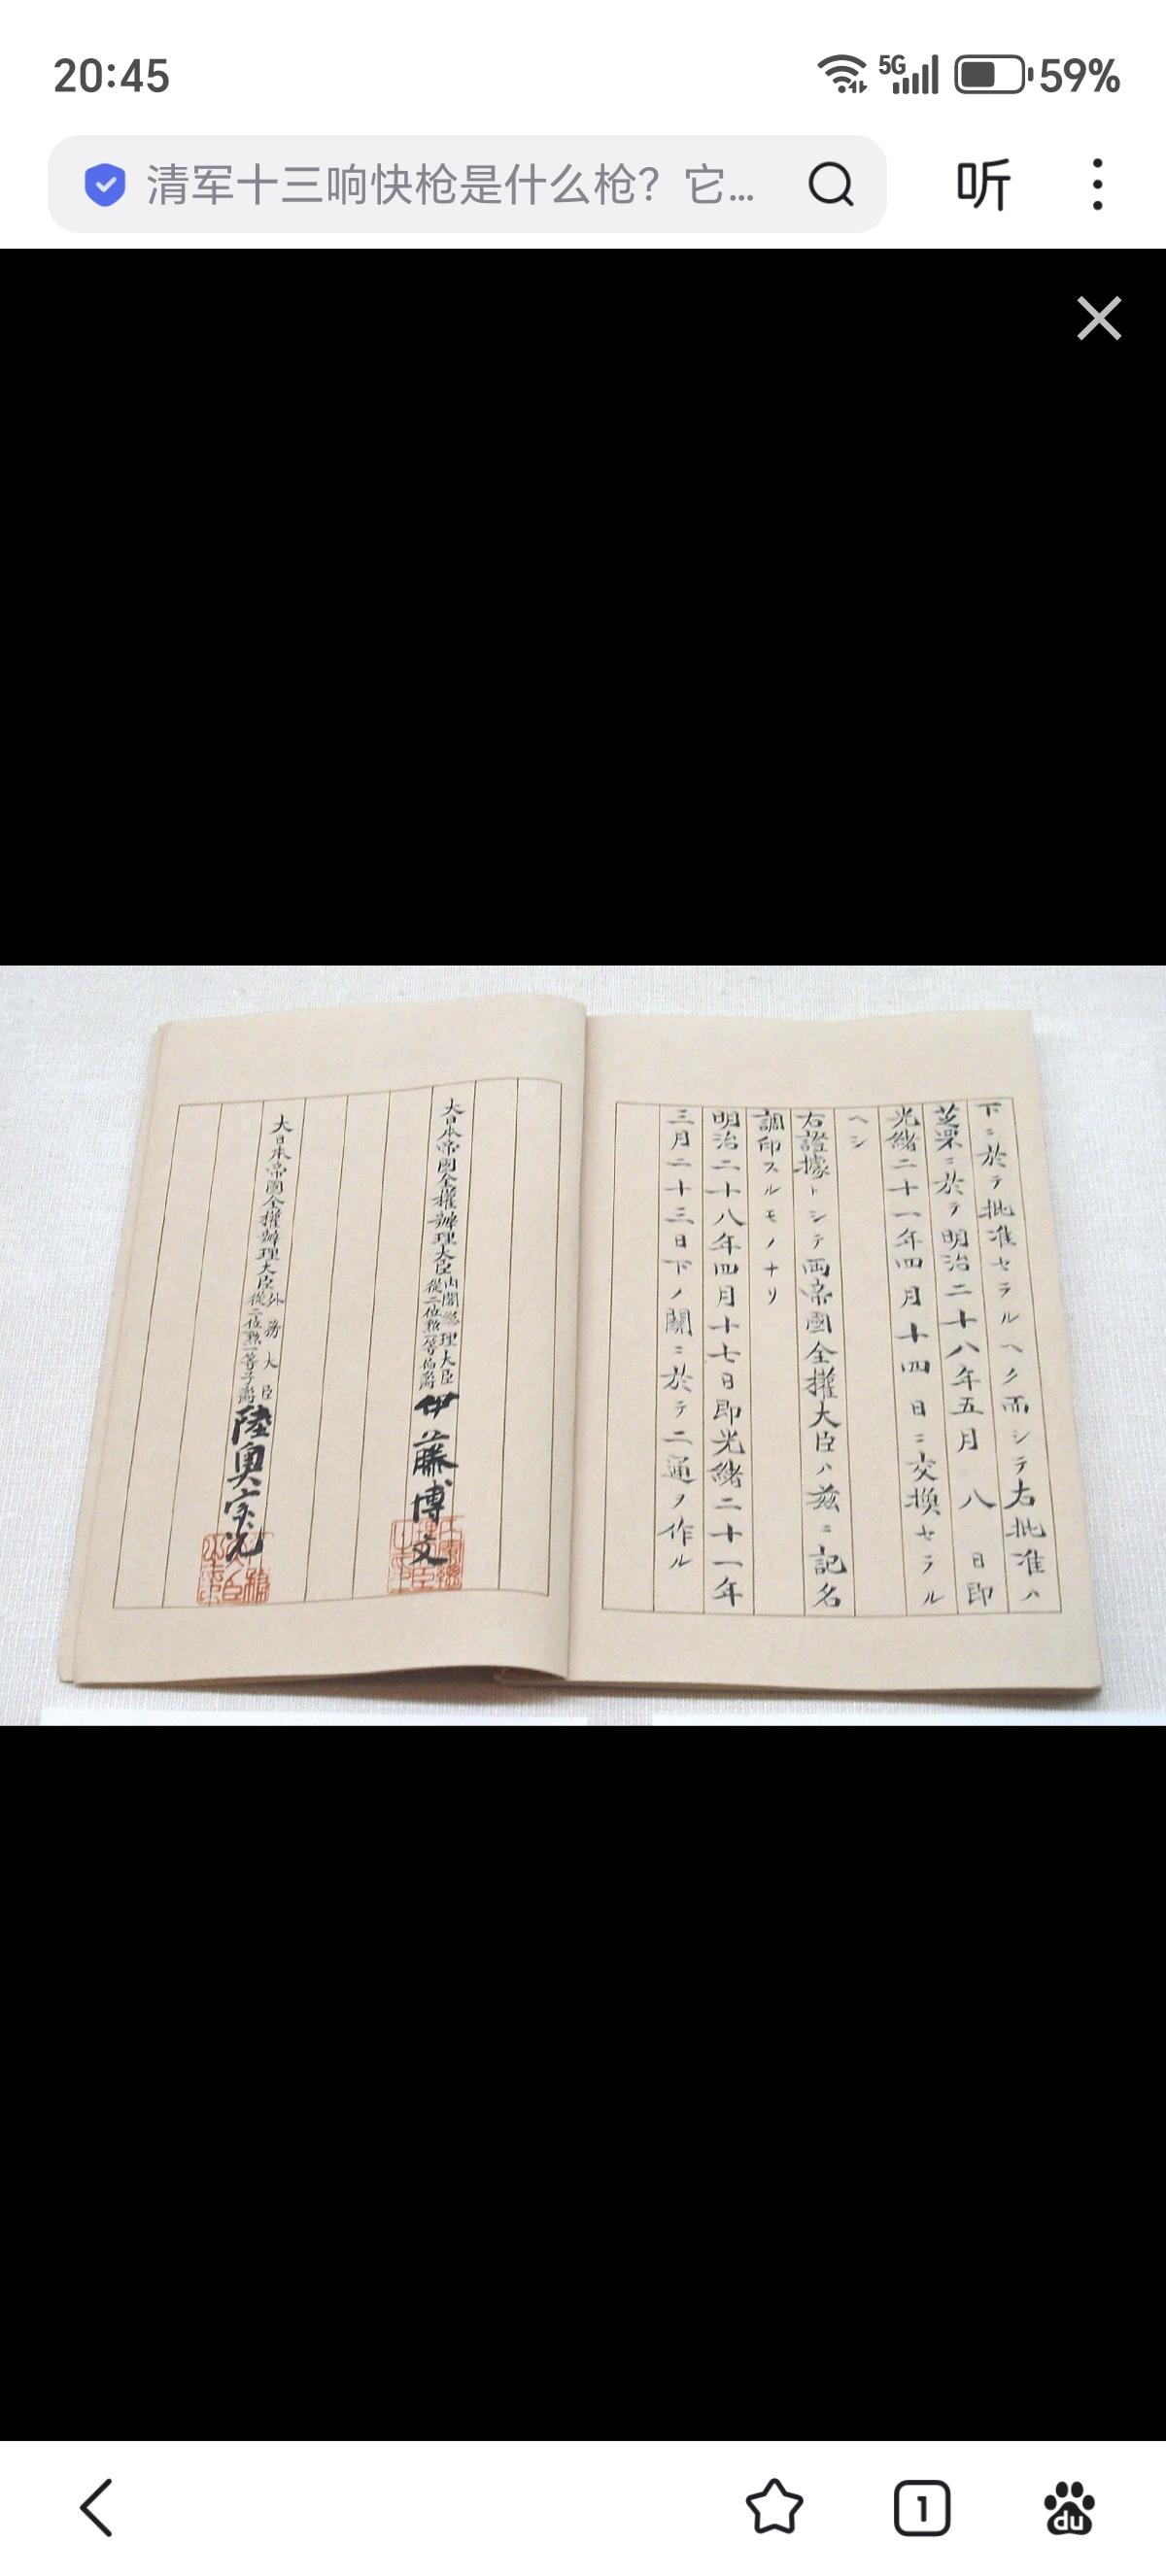 20:45
5G
59%
清军十三响快枪是什么枪？它...
听
下ニ於テ批准セラルヘク而シテ右批准ハ
芝罘ニ於テ明治二十八年五月八日即
光緒二十一年四月十四日ニ交換セラル
ヘシ
右證據トシテ両帝國全權大臣ハ茲ニ記名
調印スルモノナリ
明治二十八年四月十七日即光緒二十一年
三月二十三日下ノ關ニ於テ二通ヲ作ル
大日本帝國全權辨理大臣內閣總理大臣從二位勲一等伯爵伊藤博文
大日本帝國全權辨理大臣外務大臣從二位勲一等子爵陸奥宗光
1
du